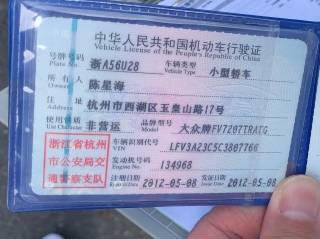 中华人民共和国机动车行驶证
Vehicle License of the People's Republic of China
号牌号码 浙A56U28 车辆类型 小型轿车
Plate No. Vehicle Type
所有人 陈星海
Owner
住址 杭州市西湖区玉皇山路17号
Address
使用性质 非营运 品牌型号 大众牌FV7207TRATG
Use Character Model
浙江省杭州
市公安局交
通警察支队
车辆识别代号 LFV3A23C5C3807766
VIN
发动机号码 134968
Engine No.
注册日期 2012-05-08 发证日期 2012-05-08
Register Date Issue Date